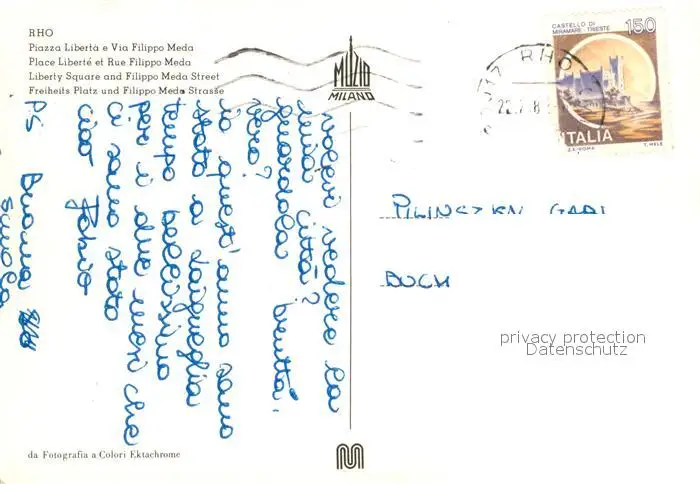 RHO
Piazza Libertà e Via Filippo Meda
Place Liberté et Rue Filippo Meda
Liberty Square and Filippo Meda Street
Freiheits Platz und Filippo Meda Strasse
MUZIO
MILANO
RHO
CASTELLO DI
MIRAMARE · TRIESTE
150
ITALIA
I.P.S.-ROMA
T. MELE
volevi vedere la
mia città?
guardala brutta,
vero?
io quest'anno sono
stato a Laigueglia
tempo bellissimo
per i due mesi che
ci sono stato
ciao Fabio
P.S Buona
scuola
GABI
privacy protection
Datenschutz
da Fotografia a Colori Ektachrome